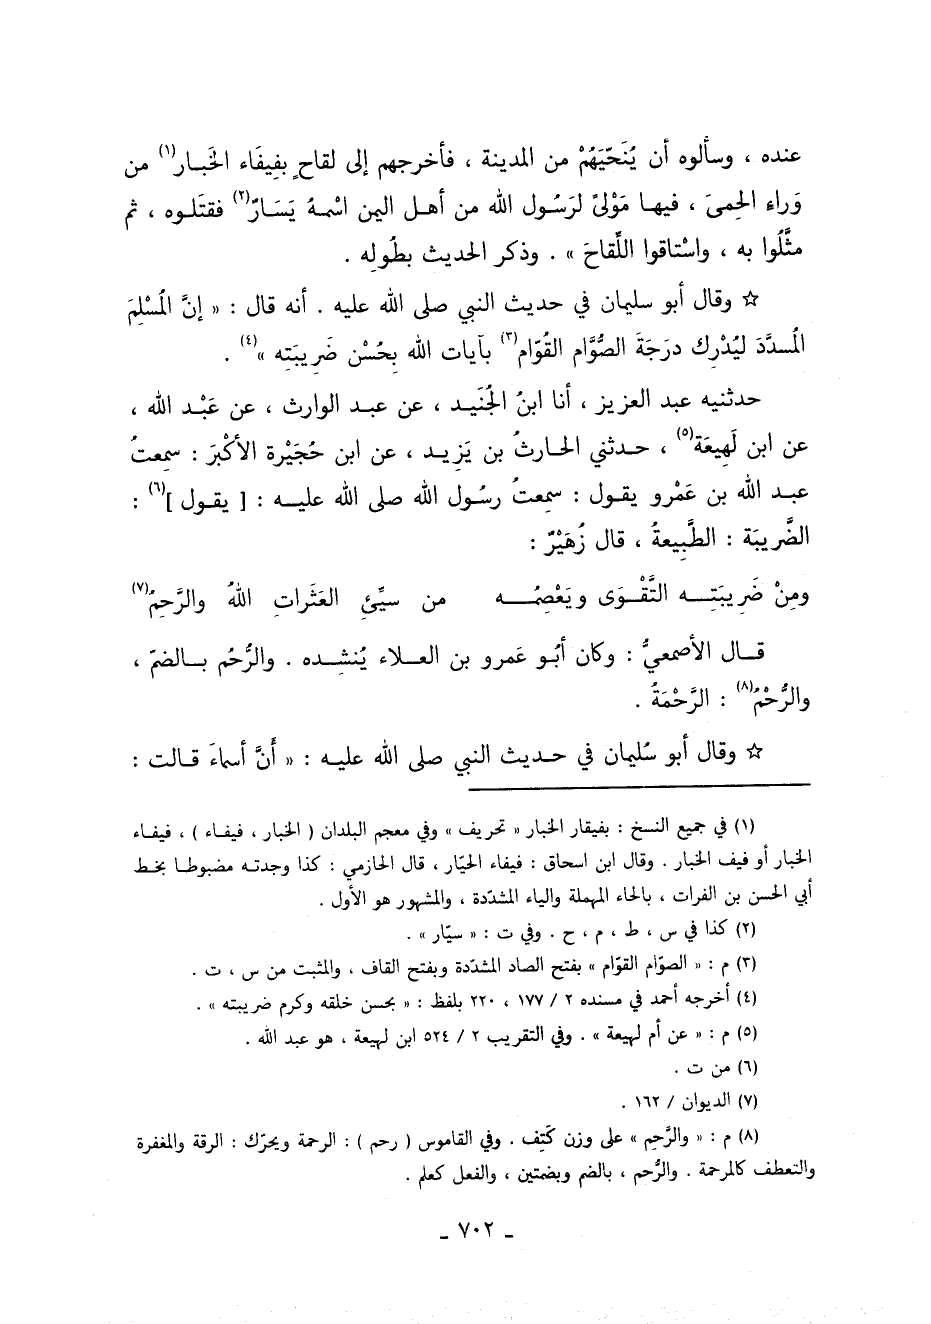 عنده ، وسألوه أن يُنَحّيَهُمْ من المدينة ، فأخرجهم إلى لقاحٍ بِفَيفَاء الخَبار(١) من
وَراء الحِمىَ ، فيها مَوْلىً لرَسُول الله من أهل اليمن اسْمهُ يَسَارٌ(٢) فقتَلوه ، ثم
مثَّلُوا به ، واسْتاقوا اللِّقاحَ » . وذكر الحديث بطُوله .
☆ وقال أبو سليمان في حديث النبي صلى الله عليه . أنه قال : « إنَّ المُسْلِمَ
المُسدَّدَ ليُدْرِك درَجَةَ الصُّوَّام القُوّام(٣) بآيات الله بِحُسْن ضَرِيبَته »(٤) .
حدثنيه عبد العزيز ، أنا ابنُ الجُنَيد ، عن عبد الوارث ، عن عَبْد الله ،
عن ابن لَهِيعَة(٥) ، حدثني الحارثُ بن يَزِيد ، عن ابن حُجَيْرة الأكْبَر : سمعتُ
عبد الله بن عَمْرو يقول : سمِعتُ رسُول الله صلى الله عليه : [ يقول ](٦) :
الضَّرِيبَة : الطَّبِيعةُ ، قال زُهَيْرٌ :
ومِنْ ضَرِيبَتِه التَّقْوَى ويَعْصِمُه من سيِّئِ العَثَراتِ اللهُ والرَّحِمُ(٧)
قال الأصمعيُّ : وكان أبُو عَمرو بن العلاء يُنشِده . والرُّحُم بالضمّ ،
والرُّحْمُ(٨) : الرَّحْمَةُ .
☆ وقال أبو سُليمان في حديث النبي صلى الله عليه : « أَنَّ أسماءَ قالت :
(١) في جميع النسخ : بفيقار الخبار « تحريف » وفي معجم البلدان ( الخبار ، فيفاء ) ، فيفاء
الخبار أو فيف الخبار . وقال ابن اسحاق : فيفاء الخبّار ، قال الحازمي : كذا وجدته مضبوطا بخط
أبي الحسن بن الفرات ، بالحاء المهملة والياء المشدّدة ، والمشهور هو الأول .
(٢) كذا في س ، ط ، م ، ح . وفي ت : « سيّار » .
(٣) م : « الصوّام القوّام » بفتح الصاد المشدّدة وبفتح القاف ، والمثبت من س ، ت .
(٤) أخرجه أحمد في مسنده ٢ / ١٧٧ ، ٢٢٠ بلفظ : « بحسن خلقه وكرم ضريبته » .
(٥) م : « عن أم لهيعة » . وفي التقريب ٢ / ٥٢٤ ابن لهيعة ، هو عبد الله .
(٦) من ت .
(٧) الديوان / ١٦٢ .
(٨) م : « والرَّحِم » على وزن كَتِف . وفي القاموس ( رحم ) : الرحمة ويحرّك : الرقة والمغفرة
والتعطف كالمرحمة . والرُّحم ، بالضم وبضمتين ، والفعل كعلم .
ـ ٧٠٢ ـ